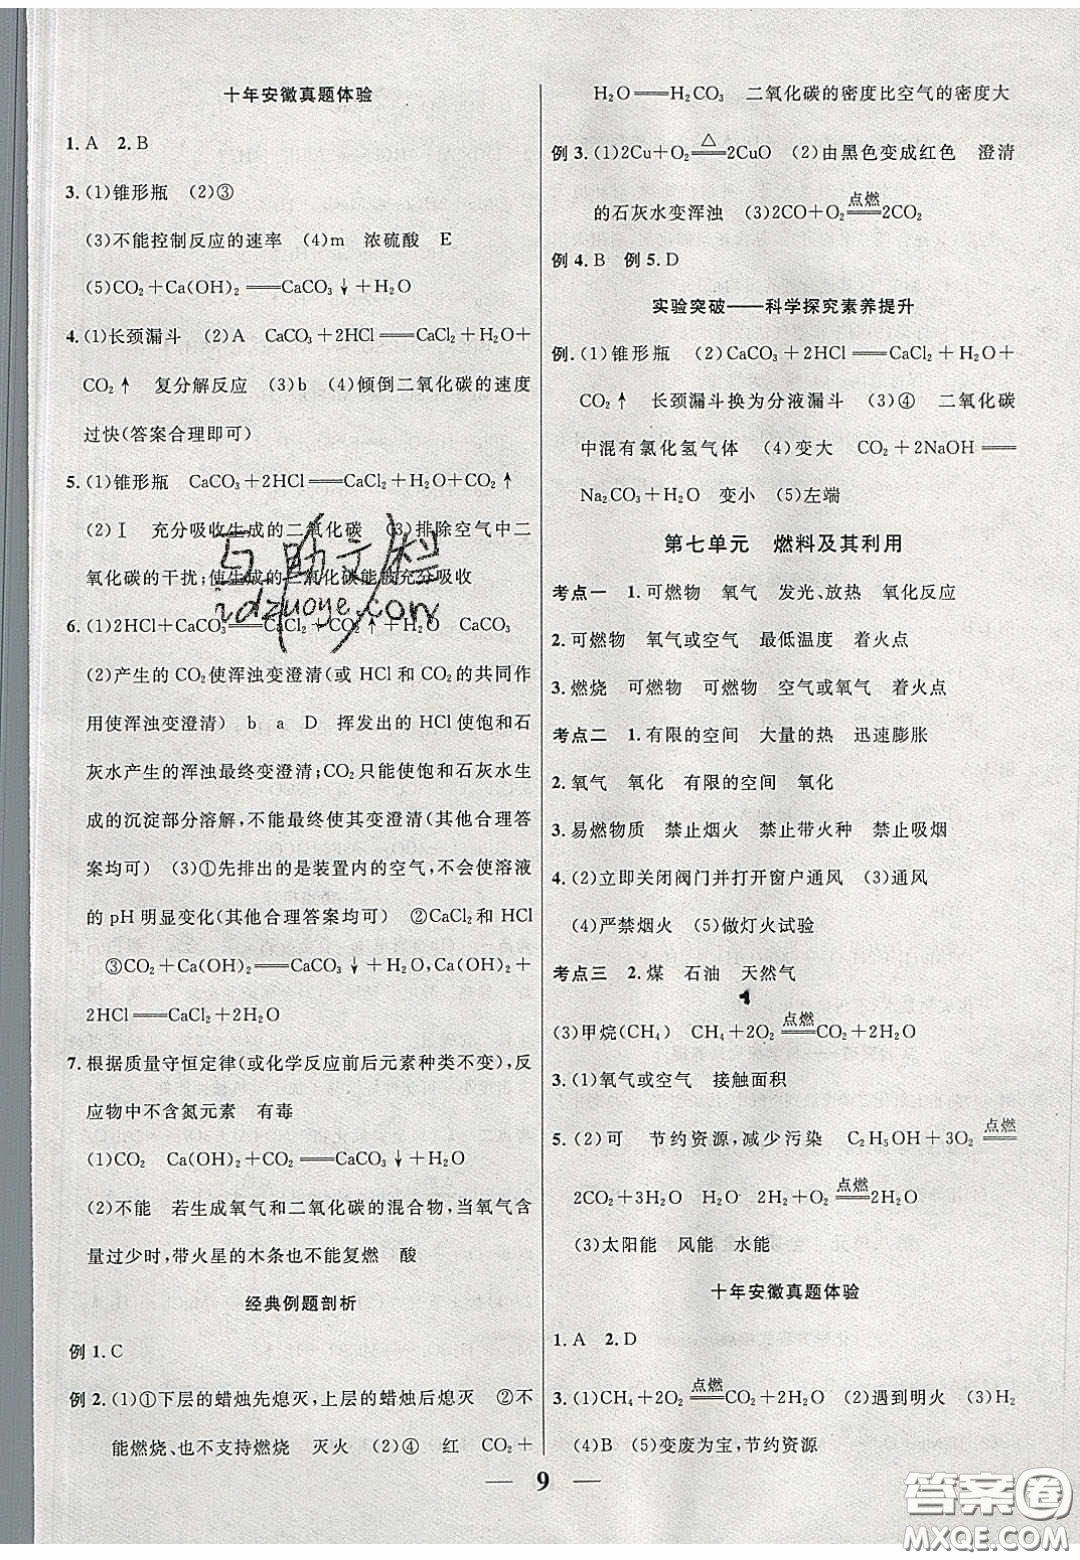 十年安徽真题体验
1. A  2. B
3. (1)锥形瓶  (2)③
(3)不能控制反应的速率  (4)m  浓硫酸  E
(5)CO₂+Ca(OH)₂══CaCO₃↓+H₂O
4. (1)长颈漏斗  (2)A  CaCO₃+2HCl══CaCl₂+H₂O+
CO₂↑  复分解反应  (3)b  (4)倾倒二氧化碳的速度
过快(答案合理即可)
5. (1)锥形瓶  CaCO₃+2HCl══CaCl₂+H₂O+CO₂↑
(2)Ⅰ  充分吸收生成的二氧化碳  (3)排除空气中二
氧化碳的干扰;使生成的二氧化碳能被充分吸收
互助文档
idzuoye.con
6. (1)2HCl+CaCO₃══CaCl₂+CO₂↑+H₂O  CaCO₃
(2)产生的CO₂使浑浊变澄清(或 HCl 和 CO₂的共同作
用使浑浊变澄清)  b  a  D  挥发出的 HCl 使饱和石
灰水产生的浑浊最终变澄清;CO₂只能使饱和石灰水生
成的沉淀部分溶解,不能最终使其变澄清(其他合理答
案均可)  (3)①先排出的是装置内的空气,不会使溶液
的 pH 明显变化(其他合理答案均可)  ②CaCl₂和 HCl
③CO₂+Ca(OH)₂══CaCO₃↓+H₂O,Ca(OH)₂+
2HCl══CaCl₂+2H₂O
7. 根据质量守恒定律(或化学反应前后元素种类不变),反
应物中不含氮元素  有毒
(1)CO₂  Ca(OH)₂+CO₂══CaCO₃↓+H₂O
(2)不能  若生成氧气和二氧化碳的混合物,当氧气含
量过少时,带火星的木条也不能复燃  酸
经典例题剖析
例 1. C
例 2. (1)①下层的蜡烛先熄灭,上层的蜡烛后熄灭  ②不
能燃烧、也不支持燃烧  灭火  (2)④  红  CO₂+
H₂O══H₂CO₃  二氧化碳的密度比空气的密度大
例 3. (1)2Cu+O₂ △══ 2CuO  (2)由黑色变成红色  澄清
的石灰水变浑浊  (3)2CO+O₂ 点燃══ 2CO₂
例 4. B  例 5. D
实验突破——科学探究素养提升
例. (1)锥形瓶  (2)CaCO₃+2HCl══CaCl₂+H₂O+
CO₂↑  长颈漏斗换为分液漏斗  (3)④  二氧化碳
中混有氯化氢气体  (4)变大  CO₂+2NaOH══
Na₂CO₃+H₂O  变小  (5)左端
第七单元  燃料及其利用
考点一  1. 可燃物  氧气  发光、放热  氧化反应
2. 可燃物  氧气或空气  最低温度  着火点
3. 燃烧  可燃物  可燃物  空气或氧气  着火点
考点二  1. 有限的空间  大量的热  迅速膨胀
2. 氧气  氧化  有限的空间  氧化
3. 易燃物质  禁止烟火  禁止带火种  禁止吸烟
4. (2)立即关闭阀门并打开窗户通风  (3)通风
(4)严禁烟火  (5)做灯火试验
考点三  2. 煤  石油  天然气
(3)甲烷(CH₄)  CH₄+2O₂ 点燃══ CO₂+2H₂O
3. (1)氧气或空气  接触面积
5. (2)可  节约资源,减少污染  C₂H₅OH+3O₂ 点燃══
2CO₂+3H₂O  H₂O  2H₂+O₂ 点燃══ 2H₂O
(3)太阳能  风能  水能
十年安徽真题体验
1. A  2. D
3. (1)CH₄+2O₂ 点燃══ CO₂+2H₂O  (2)遇到明火  (3)H₂
(4)B  (5)变废为宝,节约资源
— 9 —
答案圈
MXQE.COM